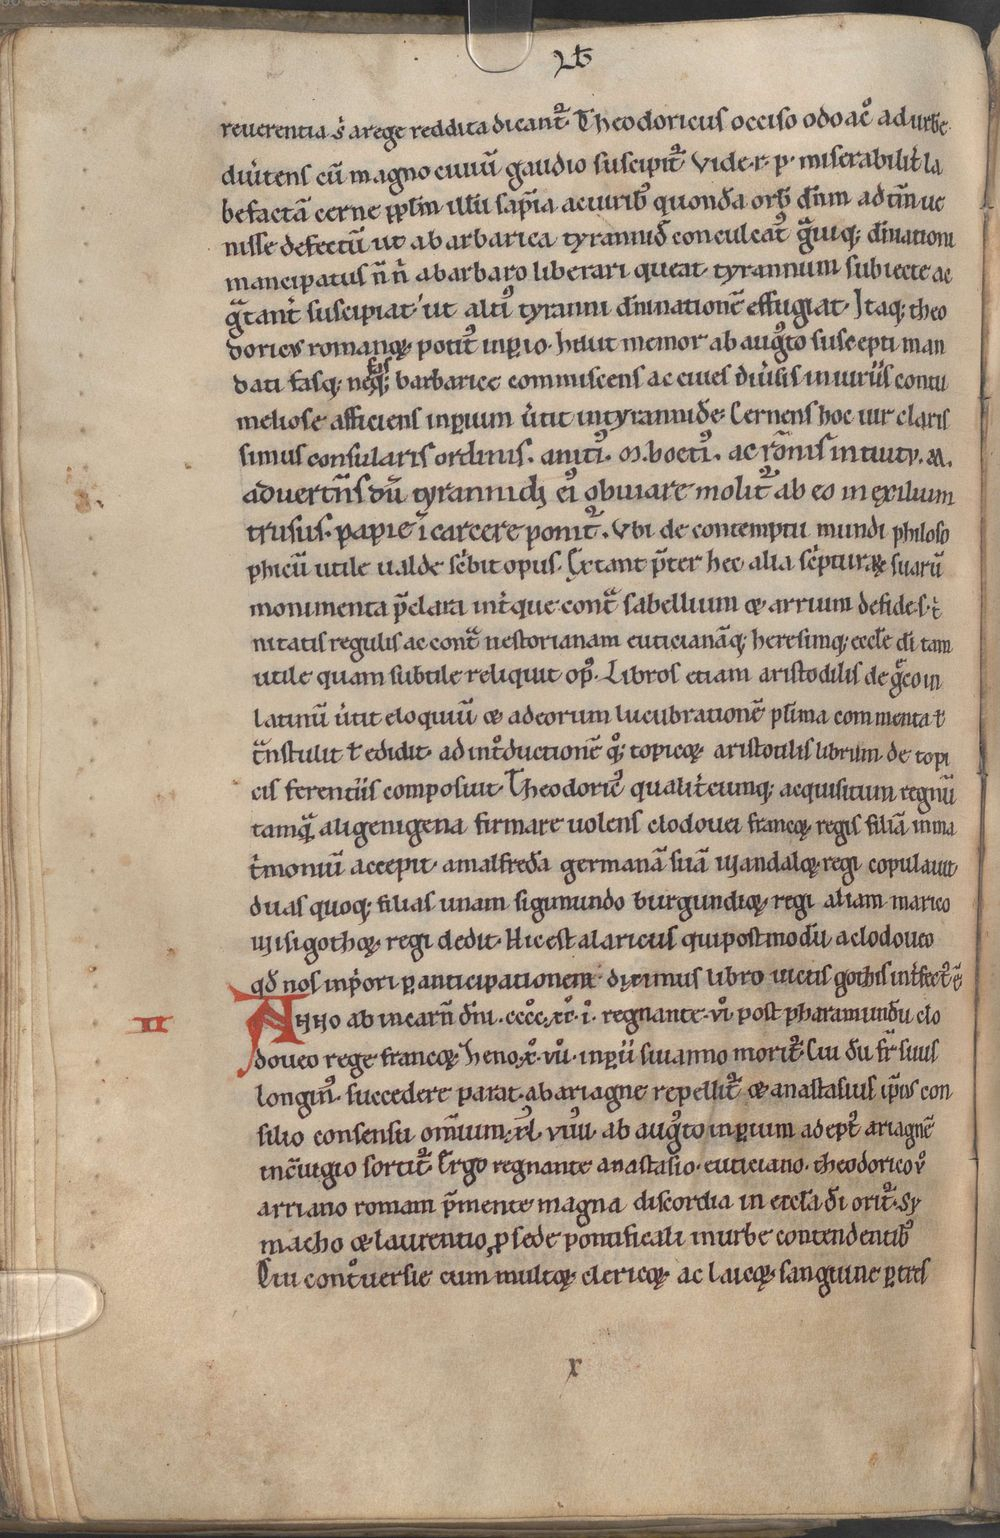 Lib
reuerentia s; a rege reddita dicant᷑. Theodoricus occiso odoac̊ ad urbē
diu̾tens cū magno ciuiū gaudio suscipit᷑. Vide .r. p. miserabilit̾ la
befactā cerne ppl̄m illū sap̄ia ac uirib; quondā orb; dn̄m ad tm̄ ue
nisse defectū ut a barbarica tyrannid̄ conculcat᷒ g̃uiq; dn̄ationi
mancipatus n̄ n̄ a barbaro liberari queat. tyrannum subiecte ac
g̃tant̾ suscipiat. ut alti᷒ tyranni dn̄nationē effugiat. Itaq; theo
doric᷒ romanoꝝ potit᷒ inꝑio. haut memor ab aug᷒to suscepti man
dati fasq; nefasq; barbarice commiscens ac ciues diu̾sis iniuriis contu
meliose afficiens inꝑium u̾tit in tyrannidē. Cernens hoc uir claris
simus consularis ordinis. anitī᷒. m. boeti᷒. ac rōnis intuitu.
aduert̄ns dū tyrannidi ei᷒ obuiare molit᷑ ab eo in exilium
trusus. papie ī carcere ponit᷑. Vbi de contemptu mundi philoso
phicū utile ualde sc̾bit opus. Extant p̄ter hec alia sc̾pturaꝝ suarū
monimenta p̄clara int̾ que cont̃ sabellium & arrium de fide .s. t̾
nitatis regulis ac cont̃ nestorianam euticianāq; heresimq; eccl̄e dī tam
utile quam subtile reliquit op᷒. Libros etiam aristodilis de g̃co in
latinū u̾tit eloquiū & ad eorum lucubrationē pl̄ima commenta ł
t̃nstulit ł edidit. ad int̊ductionē q̊; topicoꝝ aristotilis librum de topi
cis ferentiis composuit. Theodoric᷒ qualit̾cumq; acquisitum regnū
tamq̃ aligenigena firmare uolens clodouei francoꝝ regis filiā in ma
t̾moniū accepit. amalfredā germanā suā uuandaloꝝ regi copulauit
duas quoq; filias unam sigimundo burgundioꝝ regi aliam marico
uuisigothoꝝ regi dedit. Hic est alaricus qui post modū a clodoueo
qd̄ nos in p̾ori ꝑ anticipationem diximus libro uictis gothis int̾fect᷒ ē
II
ANNO ab incarn̄ dn̄i .cccc̊. xc̊. i. regnante .vi̊ post pharamundū clo
doueo rege francoꝝ. Zeno .x̊. vii̊. inꝑii sui anno morit᷑. Cui dū fr̄ suus
longin᷒ succedere parat. ab ariagne repellit᷑ & anastasius ip̄ius con
silio consensu om̄ium .xl. viii᷒ ab aug᷒to inꝑium adept᷒ ariagnē
in cōiugio sortit᷑. Ergo regnante anastasio euticiano. theodorico u̾
arriano romam p̄mente magna discordia in eccl̄a dī orit᷑. Sy
macho & laurentio, ꝓ sede pontificali in urbe contendentib;
Cui cont̊uersie cum multoꝝ clericoꝝ ac laicoꝝ sanguine ꝑ tres
x